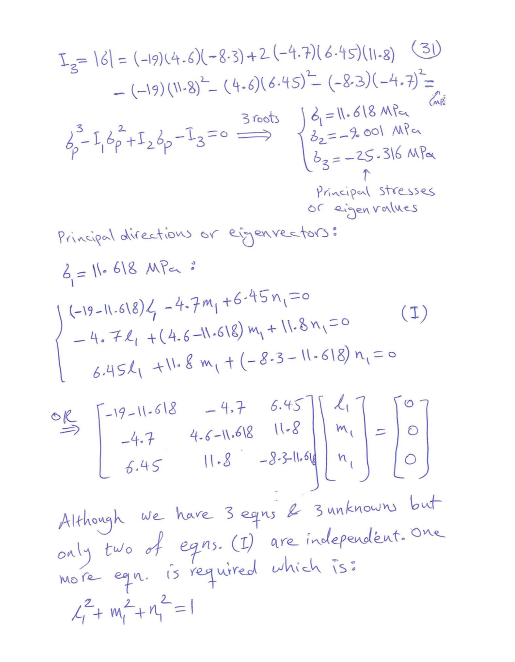 I₃ = |б| = (-19)(4.6)(-8.3)+2(-4.7)(6.45)(11.8) (31)
- (-19)(11.8)² - (4.6)(6.45)² - (-8.3)(-4.7)² =
бₚ³ - I₁бₚ² + I₂бₚ - I₃ = 0 3 roots ⟹ { б₁ = 11.618 MPa
б₂ = -9.001 MPa
б₃ = -25.316 MPa
↑
Principal stresses
or eigenvalues
Principal directions or eigenvectors:
б₁ = 11.618 MPa :
{ (-19-11.618)l₁ - 4.7m₁ + 6.45n₁ = 0
- 4.7l₁ + (4.6-11.618) m₁ + 11.8n₁ = 0 (I)
6.45l₁ + 11.8 m₁ + (-8.3 - 11.618) n₁ = 0
OR ⟹ [ -19-11.618 -4.7 6.45 ] [ l₁ ] [ 0 ]
[ -4.7 4.6-11.618 11.8 ] [ m₁ ] = [ 0 ]
[ 6.45 11.8 -8.3-11.618 ] [ n₁ ] [ 0 ]
Although we have 3 eqns & 3 unknowns but
only two of eqns. (I) are independent. One
more eqn. is required which is:
l₁² + m₁² + n₁² = 1